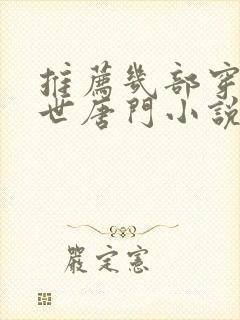 推薦幾部穿
世唐門小說
嚴定憲